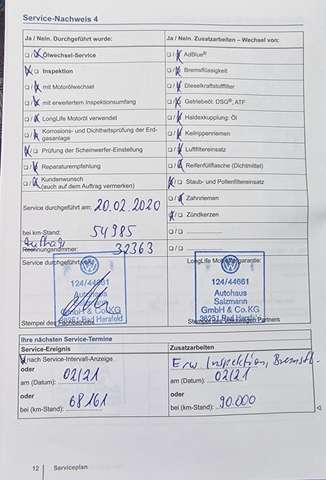 Service-Nachweis 4
Ja / Nein. Durchgeführt wurde:
Ölwechsel-Service
Inspektion
mit Motorölwechsel
mit erweitertem Inspektionsumfang
LongLife Motoröl verwendet
Korrosions- und Dichtheitsprüfung der Erdgasanlage
Prüfung der Scheinwerfer-Einstellung
Reparaturempfehlung
Kundenwunsch
(auch auf dem Auftrag vermerken)
Service durchgeführt am: 20.02.2020
bei km-Stand: 54985
Auftrag
Rechnungsnummer: 32363
Service durchgeführt
124/44661
Autohaus
GmbH & Co.KG
36251 Bad Hersfeld
Stempel des Fachbetriebs
Ja / Nein. Zusatzarbeiten – Wechsel von:
AdBlue®
Bremsflüssigkeit
Dieselkraftstofffilter
Getriebeöl: DSG®, ATF
Haldexkupplung: Öl
Keilrippenriemen
Luftfiltereinsatz
Reifenfüllflasche (Dichtmittel)
Staub- und Pollenfiltereinsatz
Zahnriemen
Zündkerzen
LongLife Mobilitätsgarantie:
124/44661
Autohaus
Salzmann
GmbH & Co.KG
36251 Bad Hersfeld
Stempel des Volkswagen Partners
Ihre nächsten Service-Termine
Service-Ereignis
nach Service-Intervall-Anzeige
oder
am (Datum): 02/21
oder
bei (km-Stand): 68161
Zusatzarbeiten
Erw. Inspektion, Bremsfl.
am (Datum): 02/21
oder
bei (km-Stand): 90.000
12 Serviceplan